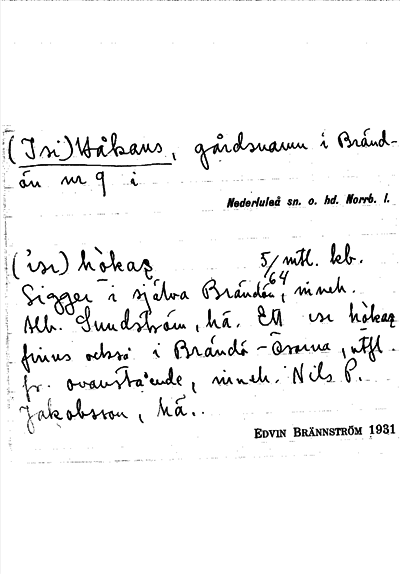 (Isi) Håkans, gårdsnamn i Bränd-
ön nr 9 i
Nederluleå sn. o. hd. Norrb. l.
('isı) hòkaꞩ 5/64 mtl. kb.
Ligger i själva Brändön, inneh.
Alb. Sundström, hä. Ett isı hòkaꞩ
finns också i Brändö-Ösarna, utfl.
fr. ovanstående, inneh. Nils P.
Jakobsson, hä.
EDVIN BRÄNNSTRÖM 1931